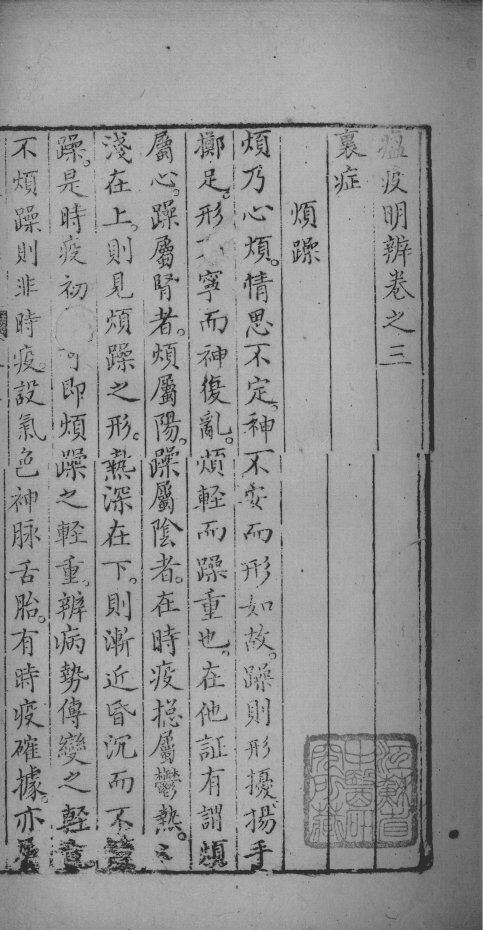 瘟疫明辨卷之三
裏症
煩躁
煩乃心煩。情思不定。神不安而形如故。躁則形擾揚手
擲足。形不寧而神復亂。煩輕而躁重也。在他証有謂煩
屬心。躁屬腎者。煩屬陽。躁屬陰者。在時疫搃屬鬱熱。
淺在上。則見煩躁之形。熱深在下。則漸近昏沉而不
躁。是時疫初 即煩躁之輕重。辨病勢傳變之輕
不煩躁則非時疫。設氣色神脉舌胎。有時疫確據。亦
江蘇省中醫研究所藏